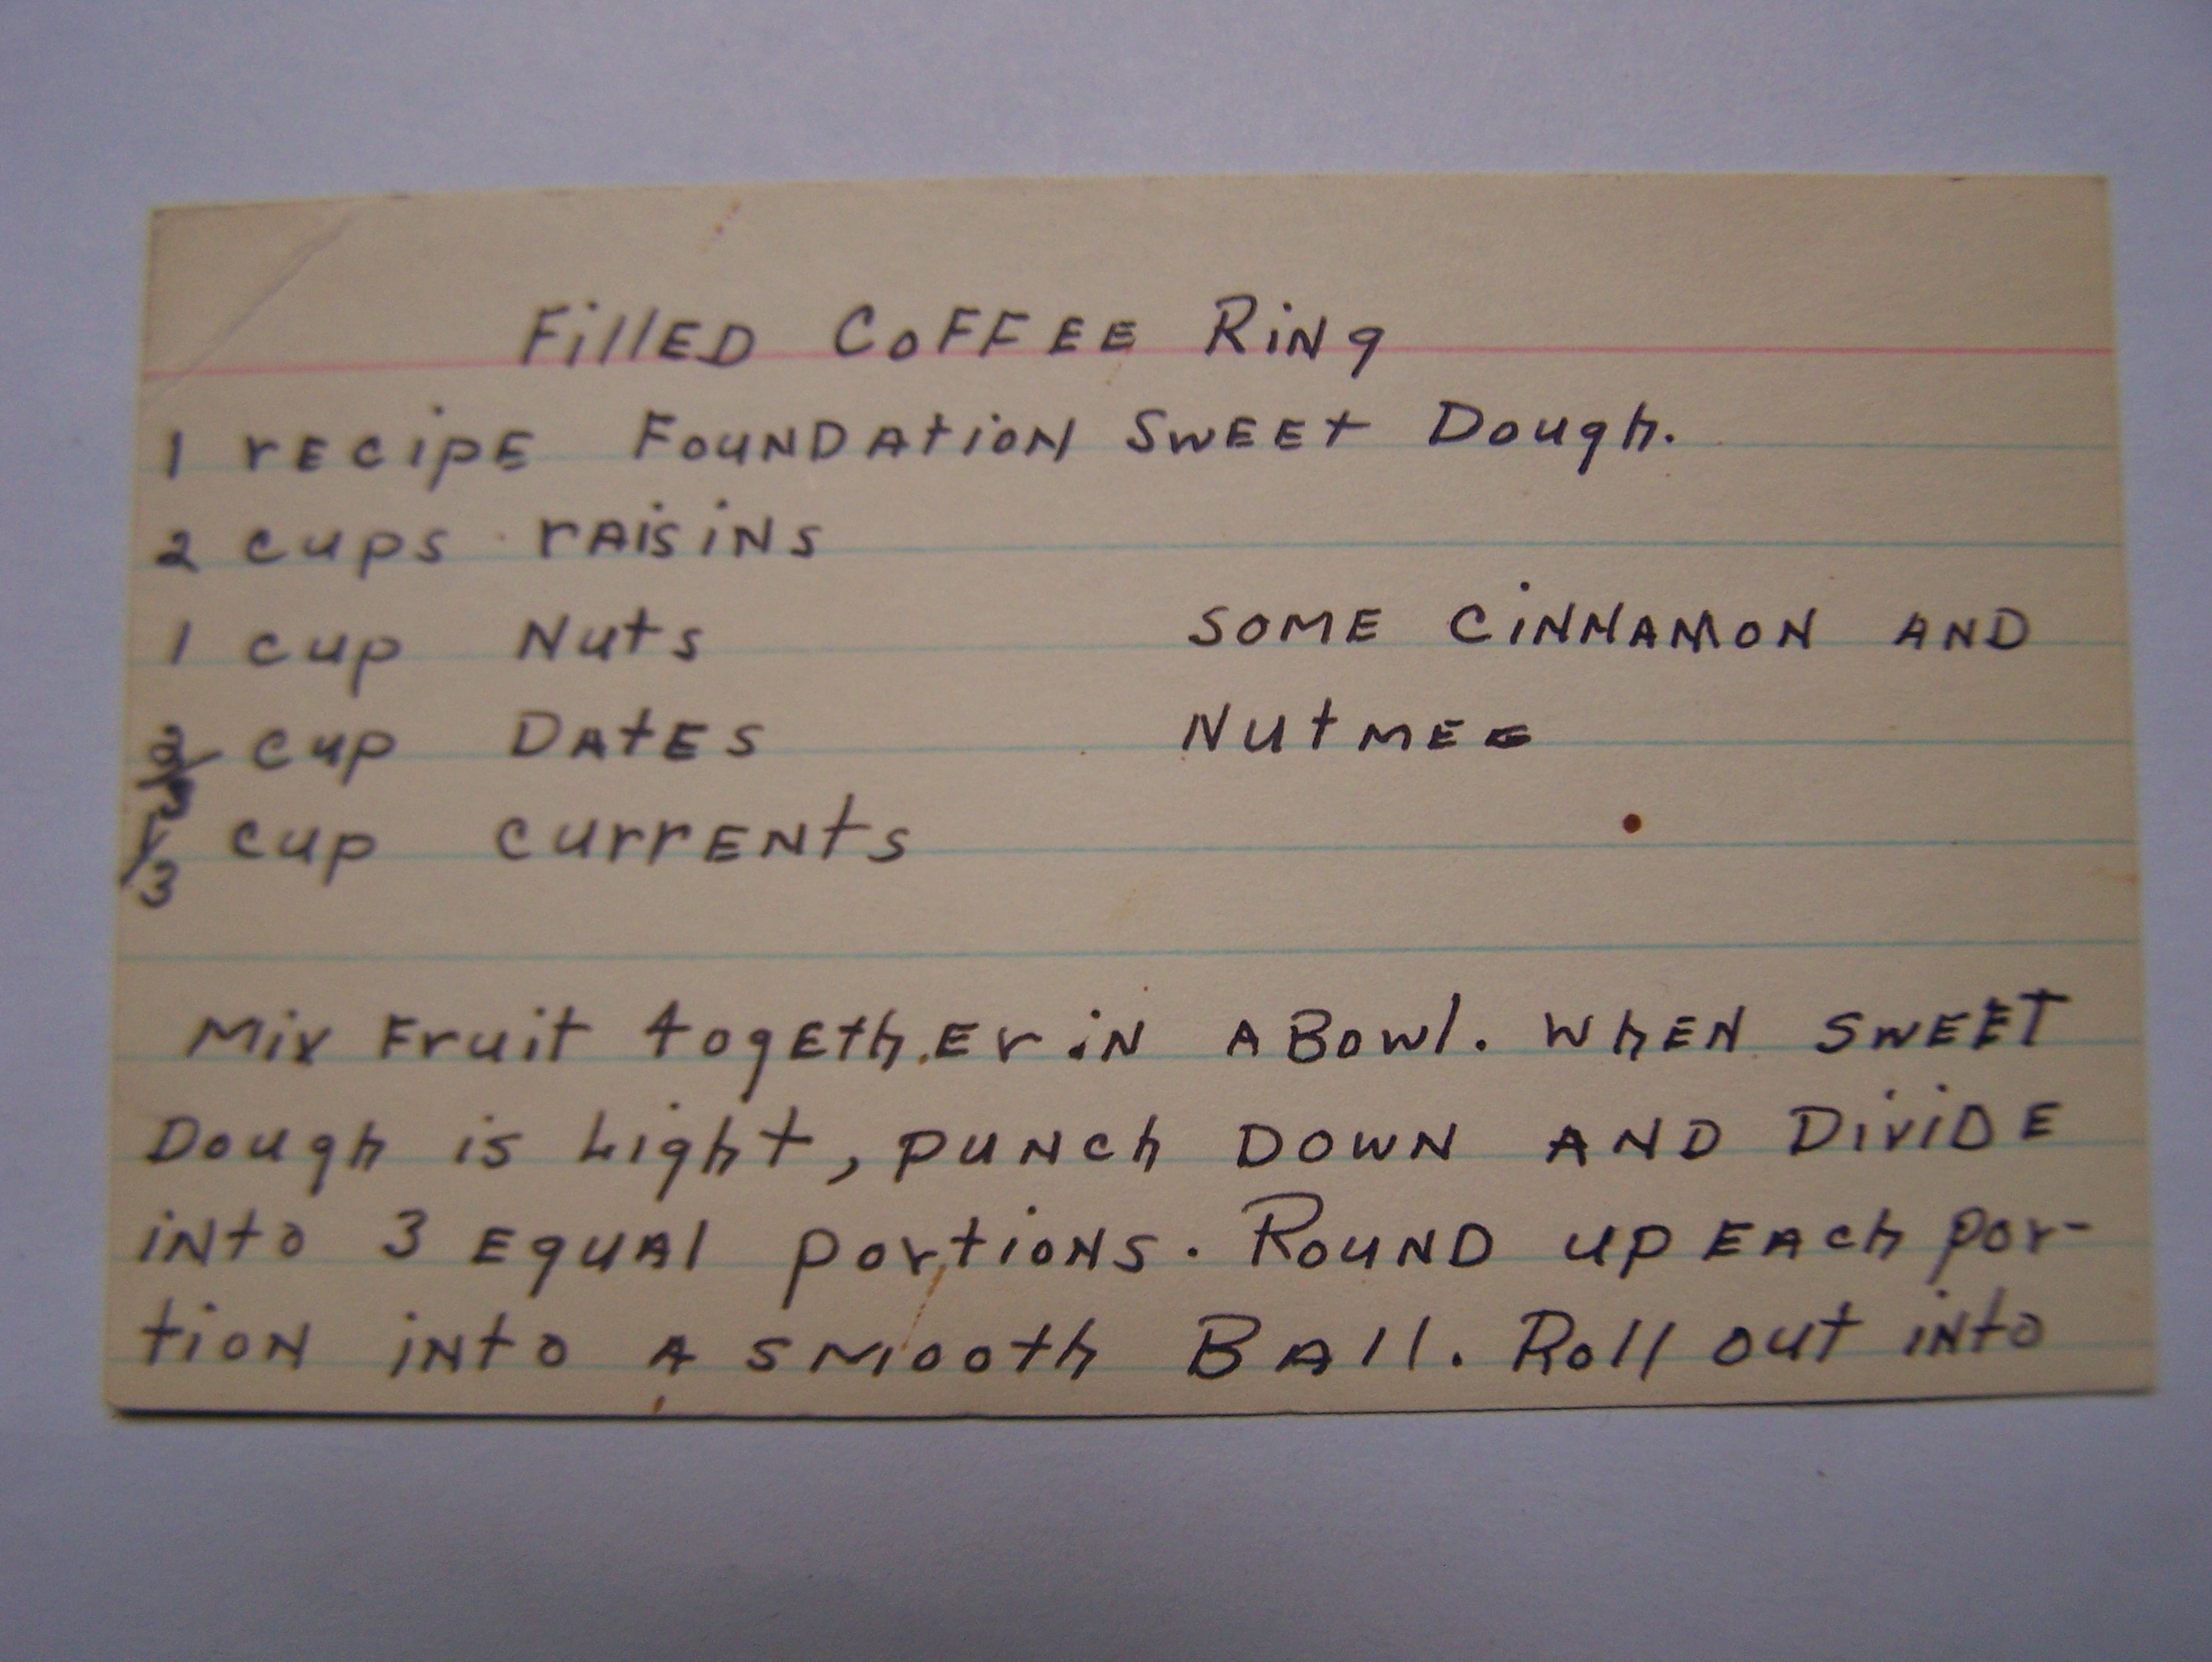 Filled Coffee Ring
1 recipe Foundation Sweet Dough.
2 cups raisins
1 cup Nuts
some cinnamon and
2/3 cup Dates
Nutmeg
1/3 cup currents
Mix Fruit together in a Bowl. When sweet
Dough is Light, punch down and Divide
into 3 equal portions. Round up each por-
tion into a smooth Ball. Roll out into